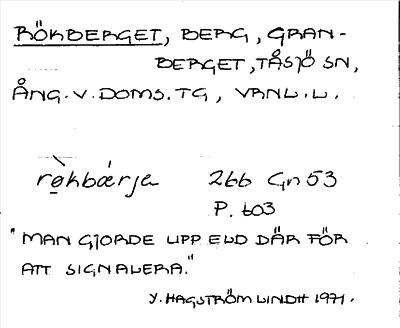 RÖKBERGET, BERG, GRAN-
BERGET, TÅSJÖ SN,
ÅNG. V. DOMS. TG, VRNL. L.
rø̀kbærja 266 Gn 53
P. 603
"MAN GJORDE UPP ELD DÄR FÖR
ATT SIGNALERA."
Y. HAGSTRÖM LINDH 1971.